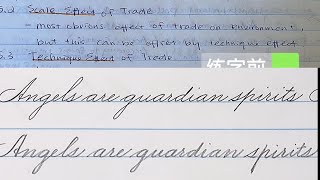 5.2 Scale Effect of Trade
- most obvious effect of trade on Environment,
but this can be offset by technique effect
5.3 Technique Effect of Trade
练字前
Angels are guardian spirits
Angels are guardian spirits